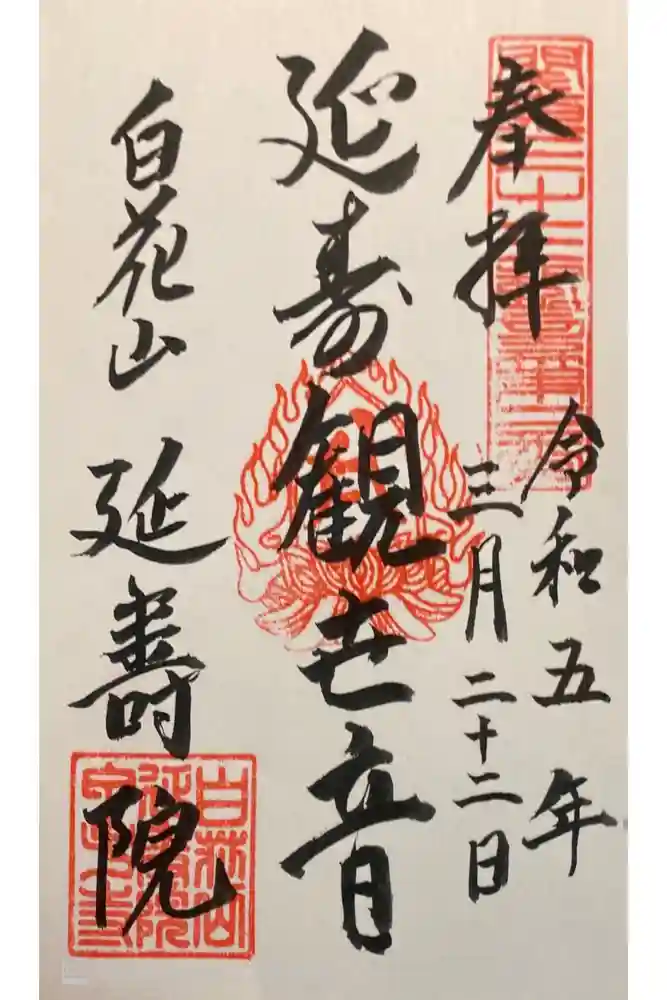 奉拝
令和五年
三月二十二日
延寿観世音
白花山
延壽院